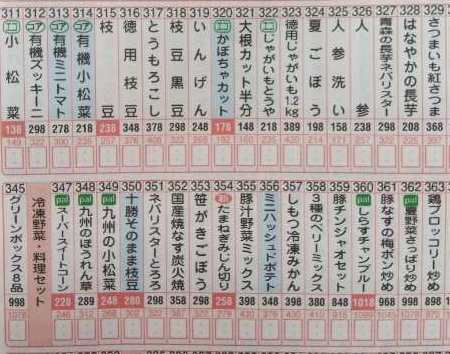 311 小松菜 138 149
312 コア 有機ズッキーニ 298 322
313 コア 有機ミニトマト 278 300
314 コア 有機小松菜 218 235
315 枝豆 238
316 徳用枝豆 348
317 とうもろこし 378
318 枝豆黒豆 298
319 いんげん 248
320 かぼちゃカット 178 192
321 大根カット半分 148 160
322 じゃがいもとうや 248
323 徳用じゃがいも1.2kg 389
324 夏ごぼう 198
325 人参洗い 158
326 人参 238
327 青森の長芋ネバリスター 298 322
328 はなやかの長芋 208
329 さつまいも紅さつま 368
345 グリーンボックス8品 998 1078
冷凍野菜・料理セット
347 pal スーパースイートコーン 228 246
348 pal 九州のほうれん草 289 312
349 pal 九州の小松菜 248 268
350 十勝そのまま枝豆 280 302
351 ネバリスターとろろ 298
352 国産焼なす炭火焼 358
353 笹がきごぼう 298
354 たまねぎみじん切り 258
355 豚汁野菜ミックス 398
356 ミニハッシュドポテト 348
357 しもつ冷凍みかん 398
358 3種のベリーミックス 380 410
359 豚チンジャオセット 848
360 pal しらすチャンプルー 1018
361 豚なすの梅ポン炒め 968
362 pal 夏野菜さっぱり炒め 998
363 鶏ブロッコリー炒め 898